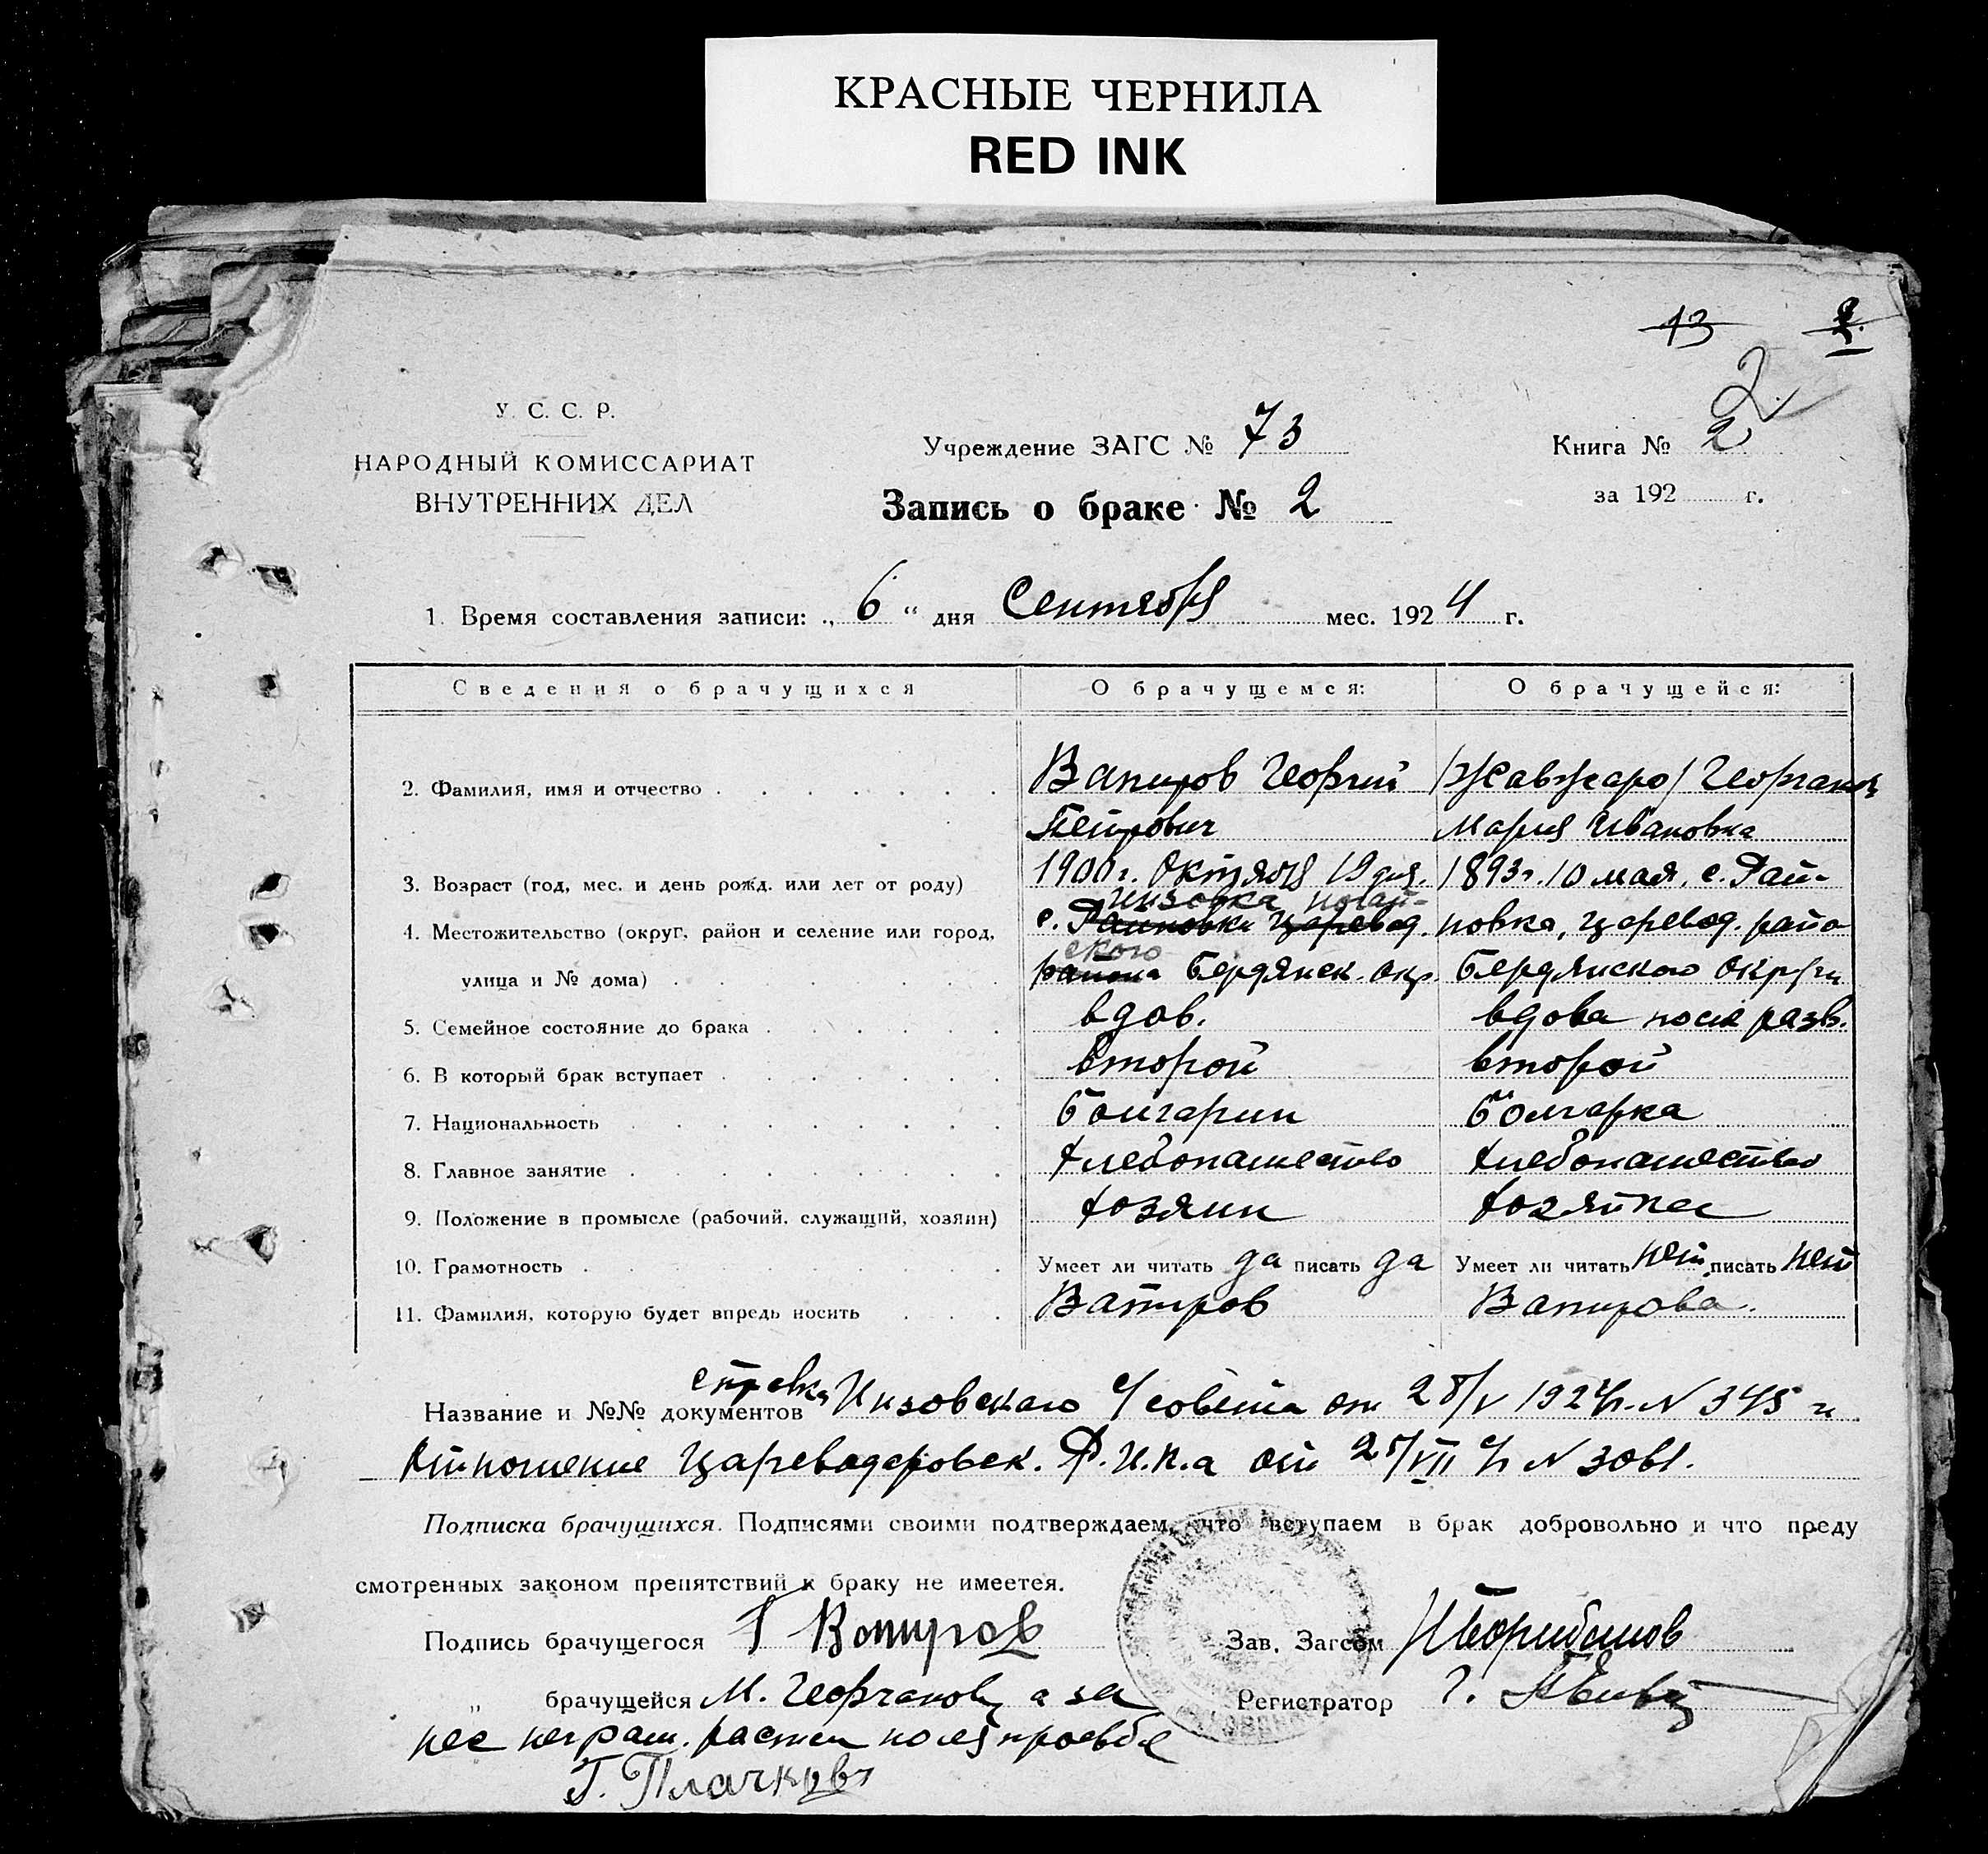 КРАСНЫЕ ЧЕРНИЛА
RED INK
13
У. С. С. Р.
НАРОДНЫЙ КОМИССАРИАТ
ВНУТРЕННИХ ДЕЛ
Учреждение ЗАГС № 73
Книга № 2
за 192 г.
Запись о браке № 2
1. Время составления записи: „ 6 “ дня Сентября мес. 1924 г.
Сведения о брачущихся О брачущемся: О брачущейся:
2. Фамилия, имя и отчество Вапиров Георгий /Жавжаро/
Петрович Мария Ивановна
3. Возраст (год, мес. и день рожд. или лет от роду) 1900 г. Октября 19 дня. 1893 г. 10 мая. с. Рай-
Инзовка
4. Местожительство (округ, район и селение или город, с. Райновка Царевод. новка, Царевод. райо
ского
улица и № дома) района Бердянск. окр. Бердянского Округа
5. Семейное состояние до брака вдов. вдова после разв.
6. В который брак вступает второй второй
7. Национальность болгарин болгарка
8. Главное занятие хлебопашество хлебопашество
9. Положение в промысле (рабочий, служащий, хозяин) хозяин хозяйка
10. Грамотность Умеет ли читать да писать да Умеет ли читать нет писать нет
11. Фамилия, которую будет впредь носить Вапиров Вапирова.
справка
Название и №№ документов Инзовского С/совета от 28/V 1924 г. N 345 и
Отношение Цареводаровск. Р.И.К.а от N 3061.
Подписка брачущихся. Подписями своими подтверждаем, что вступаем в брак добровольно и что преду
смотренных законом препятствий к браку не имеется.
Подпись брачущегося Г Вапиров Зав. Загсом
„ брачущейся М. а за Регистратор Г.
нее неграм. распис по ея просьбе
Г. Плачков